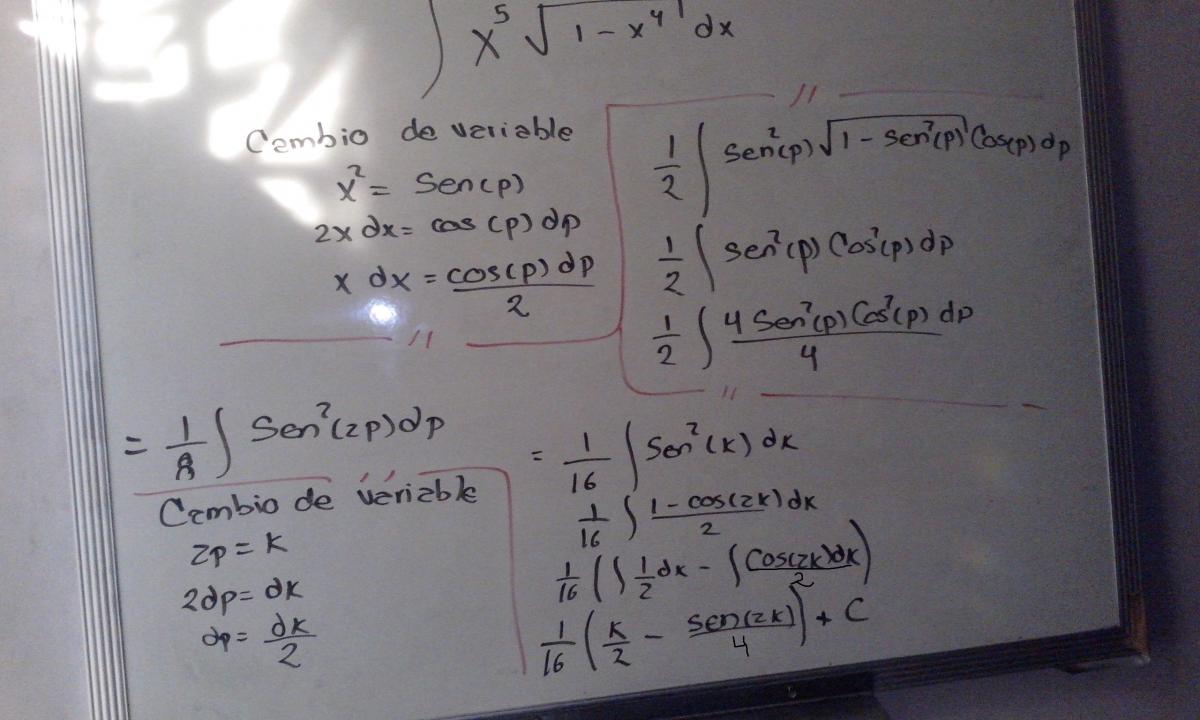 ∫ x⁵ √(1 - x⁴) dx
Cambio de variable
x² = Sen(p)
2x dx = cos(p) dp
x dx = cos(p) dp / 2
1/2 ∫ Sen²(p) √(1 - Sen²(p)) Cos(p) dp
1/2 ∫ Sen²(p) Cos²(p) dp
1/2 ∫ 4 Sen²(p) Cos²(p) dp / 4
= 1/8 ∫ Sen²(2p) dp
Cambio de variable
2p = K
2dp = dk
dp = dk/2
= 1/16 ∫ Sen²(k) dk
1/16 ∫ (1 - cos(2k)) dk / 2
1/16 (∫ 1/2 dk - ∫ Cos(2k) dk / 2)
1/16 (k/2 - Sen(2k)/4) + C